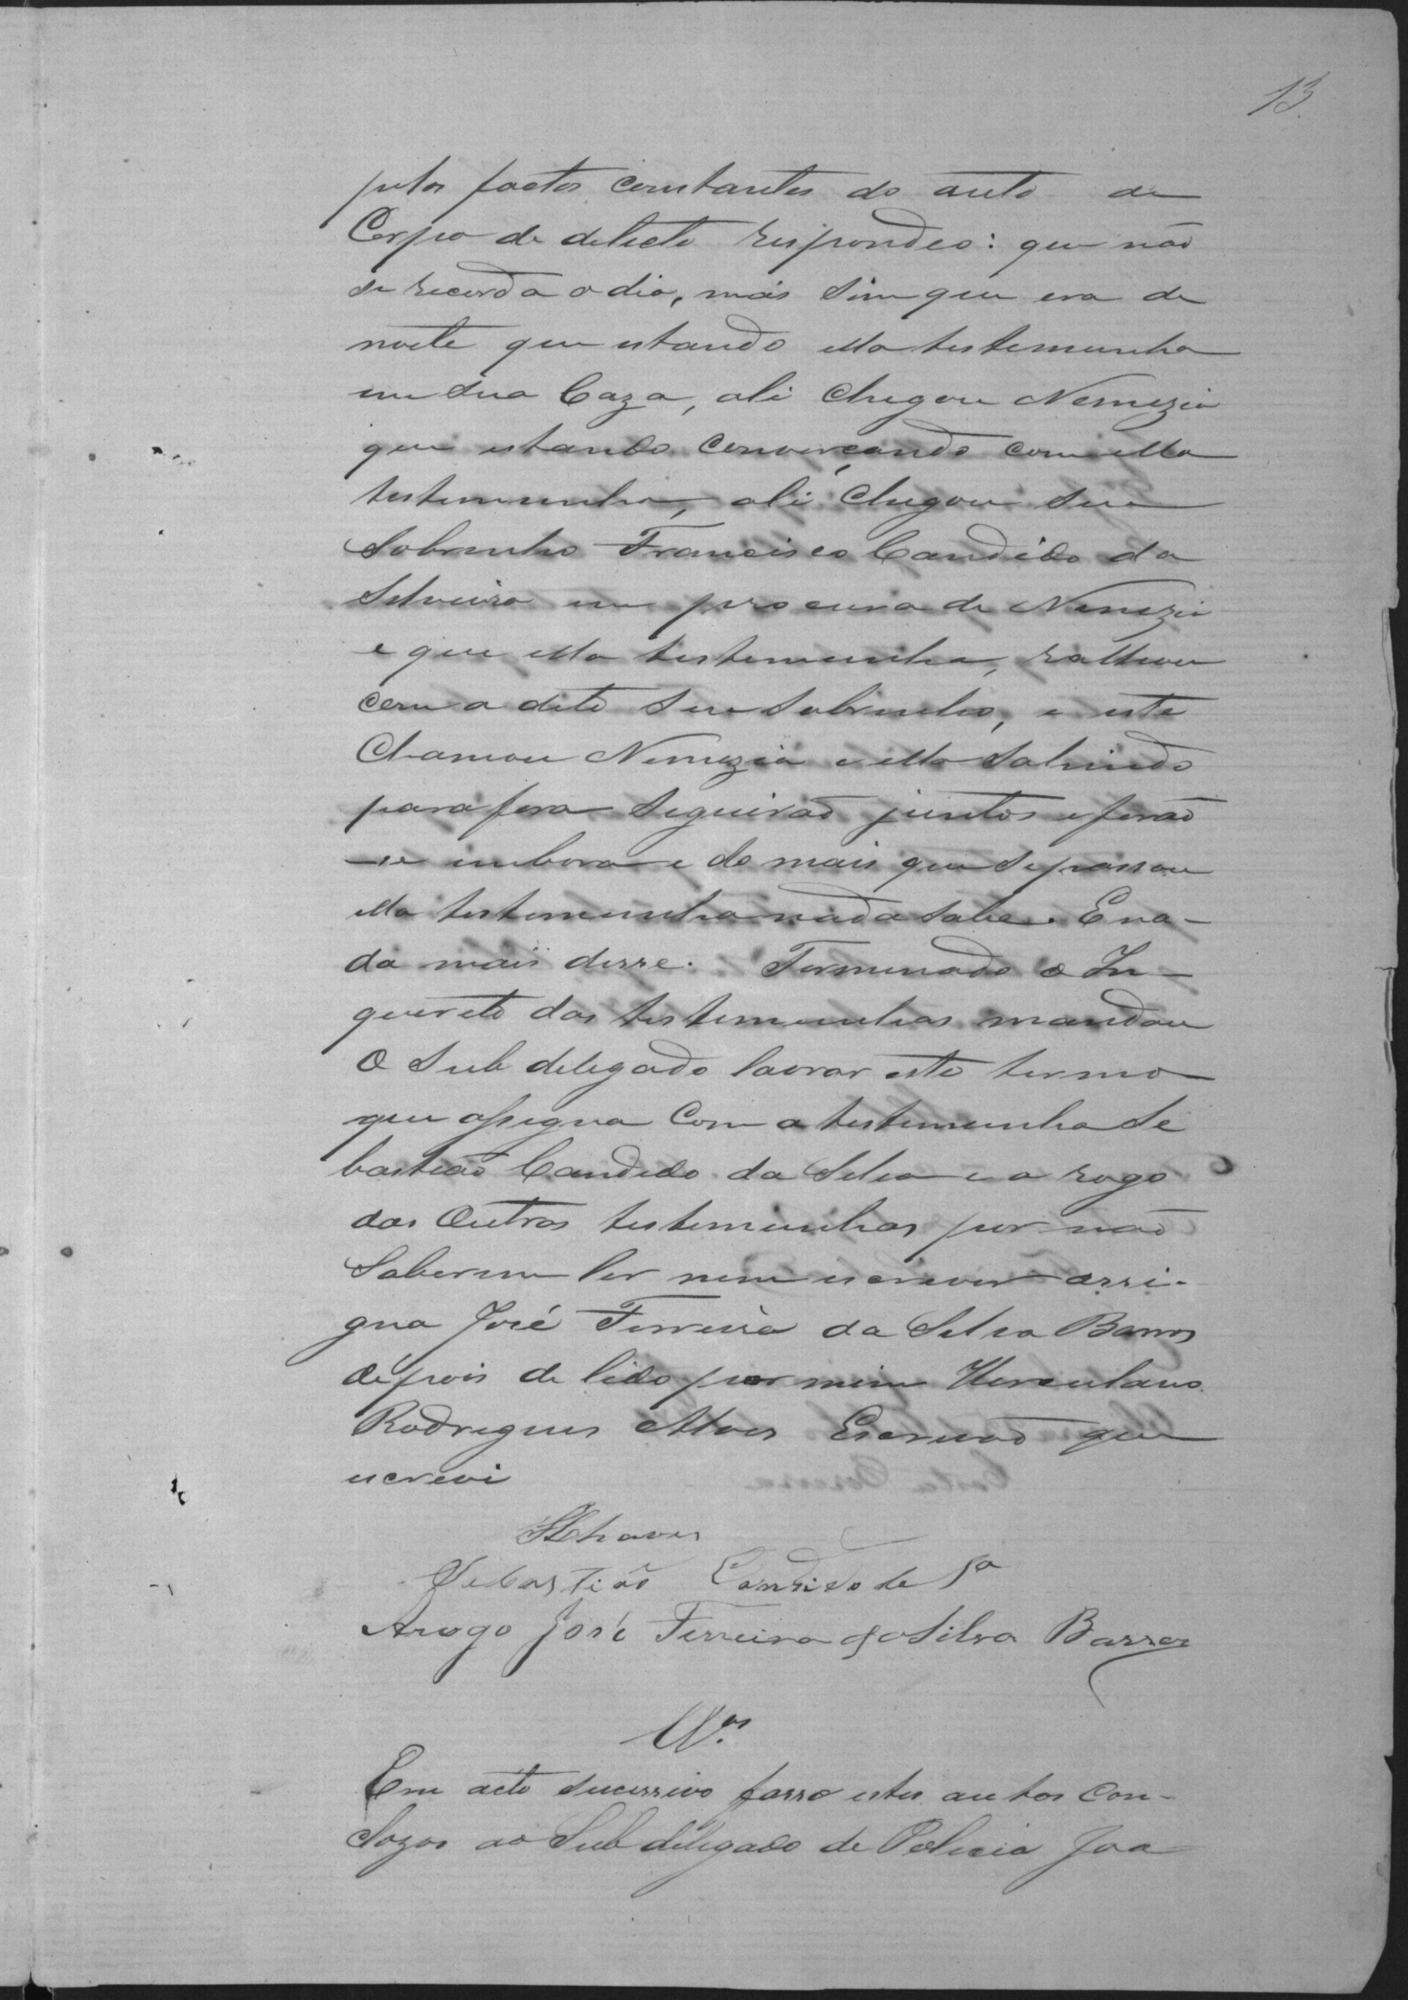 13
pelos factos constantes do auto de
Corpo de delicto respondeo: que não
se recorda o dia, mas sim que era de
noite que estando ella testemunha
em sua Caza, ali chegou Nemezia
que estando converçando com ella
testemunha, ali chegou seu
Sobrinho Francisco Candido da
Silveira em procura de Nemezia
e que ella testemunha, ralhou
com o dito seu sobrinho, e este
chamou Nemezia e ella sahindo
para fora seguirão juntos e forão
-se embora e do mais que se passou
ella testemunha nada sabe. E na-
da mais disse. Terminado o In-
querito das testemunhas mandou
o Sub delegado lavrar este termo
que assigna com a testemunha Se
bastião Candido da Silva e a rogo
das outras testemunhas por não
saberem ler nem escrever assi-
gna José Ferreira da Silva Barros
depois de lido por mim Herculano
Rodrigues Alves Escrivão que
escrevi
Chaves
Sebastião Candido de Sa
Arogo José Ferreira da Silva Barros
Em acto sucessivo fasso estes autos con-
clozos ao Sub delegado de Policia Joa